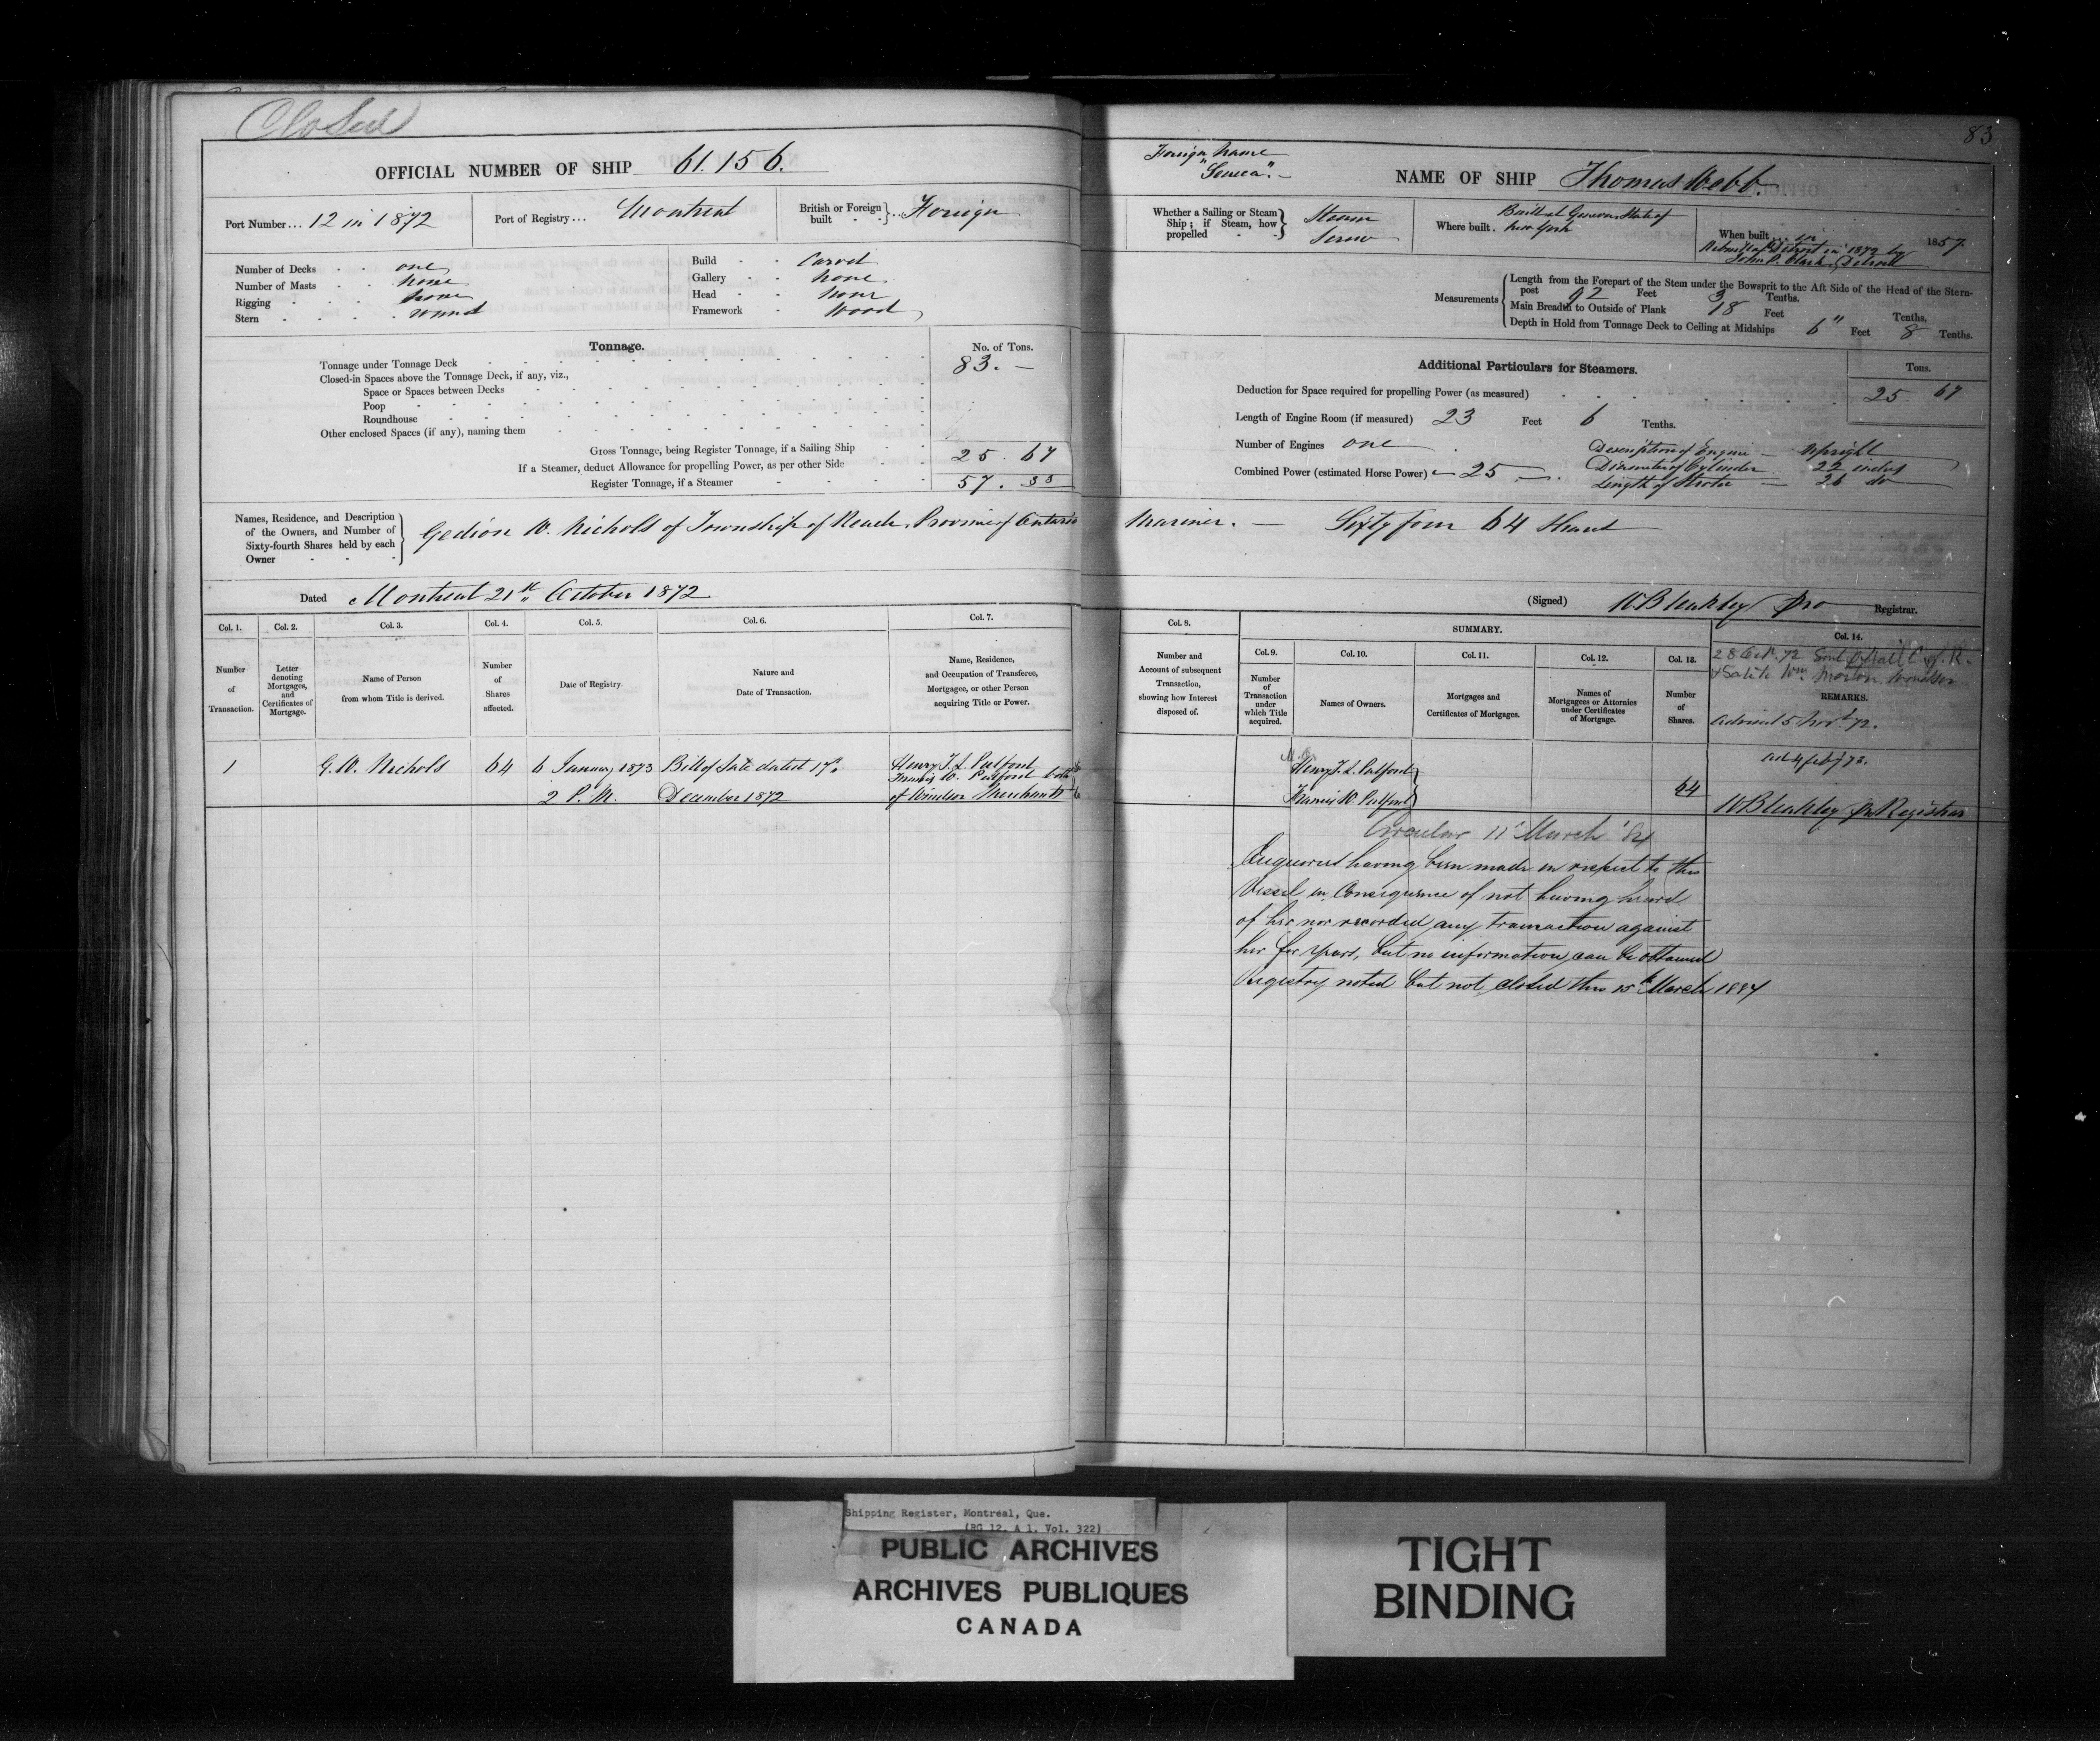 Closed
83
OFFICIAL NUMBER OF SHIP 61.156.
Port Number... 12 in 1872
Port of Registry... Montreal
British or Foreign built - - } .. Foreign
Number of Decks - - one
Number of Masts - - none
Rigging - - - none
Stern - - - -
Build - - Carvel
Gallery - - none
Head - - none
Framework - Wood
Tonnage.
No. of Tons.
Tonnage under Tonnage Deck 83. —
Closed-in Spaces above the Tonnage Deck, if any, viz.,
Space or Spaces between Decks
Poop
Roundhouse
Other enclosed Spaces (if any), naming them
Gross Tonnage, being Register Tonnage, if a Sailing Ship
If a Steamer, deduct Allowance for propelling Power, as per other Side 25. 67
Register Tonnage, if a Steamer 57. 33
Foreign name
"Seneca". —
NAME OF SHIP Thomas Webb.
Whether a Sailing or Steam Ship; if Steam, how propelled - - } Steam Screw
Where built. Built at Geneva State of New York
When built... in 1857.
Rebuilt at Detroit in 1872 by
John P. Clark, Detroit
Measurements { Length from the Forepart of the Stem under the Bowsprit to the Aft Side of the Head of the Stern-
post 92 Feet 3 Tenths.
Main Breadth to Outside of Plank 18 Feet Tenths.
Depth in Hold from Tonnage Deck to Ceiling at Midships 6" Feet 8 Tenths.
Additional Particulars for Steamers.
Tons.
Deduction for Space required for propelling Power (as measured) 25. 67
Length of Engine Room (if measured) 23 Feet 6 Tenths.
Number of Engines one
Combined Power (estimated Horse Power) — 25 —.
Description of Engine — Upright
Diameter of Cylinder 22 inches
Length of Stroke — 26 do
Names, Residence, and Description of the Owners, and Number of Sixty-fourth Shares held by each Owner - - - }
Gedion W. Nichols of Township of Reach, Province of Ontario Mariner. — Sixty four 64 Shares
Dated Montreal 21st October 1872.
(Signed) W. Bleakley Pro Registrar.
Col. 1. Col. 2. Col. 3. Col. 4. Col. 5. Col. 6. Col. 7.
Number of Transaction.
Letter denoting Mortgages, and Certificates of Mortgage.
Name of Person from whom Title is derived.
Number of Shares affected.
Date of Registry.
Nature and Date of Transaction.
Name, Residence, and Occupation of Transferee, Mortgagee, or other Person acquiring Title or Power.
Col. 8.
Number and Account of subsequent Transaction, showing how Interest disposed of.
SUMMARY.
Col. 9. Col. 10. Col. 11. Col. 12. Col. 13. Col. 14.
Number of Transaction under which Title acquired.
Names of Owners.
Mortgages and Certificates of Mortgages.
Names of Mortgagees or Attornies under Certificates of Mortgage.
Number of Shares.
28 Oct. 72 Sent C. of R.
Wm. Morton, Windsor
REMARKS.
Advised 5 Novr 72.
1 G. W. Nichols 64 6 January 1873 Bill of Sale dated 17th Henry T. L. Pulford
Francis W. Pulford both
2 P.M. December 1872 of Windsor Merchants
Henry T. L. Pulford
Francis W. Pulford } 64
4 feby 73.
W Bleakley Pro Registrar
Circular 11 March '84
Enquiries having been made in respect to this
Vessel in Consequence of not having heard
of her nor recorded any transaction against
her for years, but no information can be obtained
Registry noted but not closed this 15 March 1884
Shipping Register, Montreal, Que.
(RG 12, A 1, Vol. 322)
PUBLIC ARCHIVES
ARCHIVES PUBLIQUES
CANADA
TIGHT
BINDING